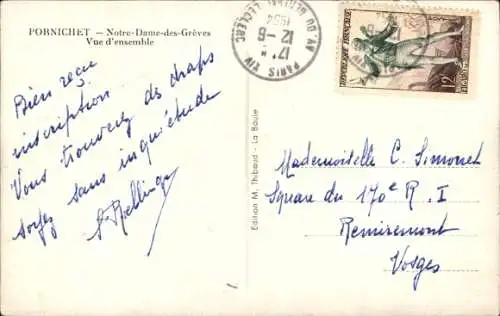 PORNICHET — Notre-Dame-des-Grèves
Vue d'ensemble
Bien reçu
inscription
Vous trouverez des draps
soyez sans inquiétude
PARIS XIV
AV. DU GENERAL LECLERC
17H
12-6
1954
REPUBLIQUE FRANÇAISE
12F
Edition M. Thibaud - La Baule
Mademoiselle C. Simonet
Square du 170e R. I
Remiremont
Vosges